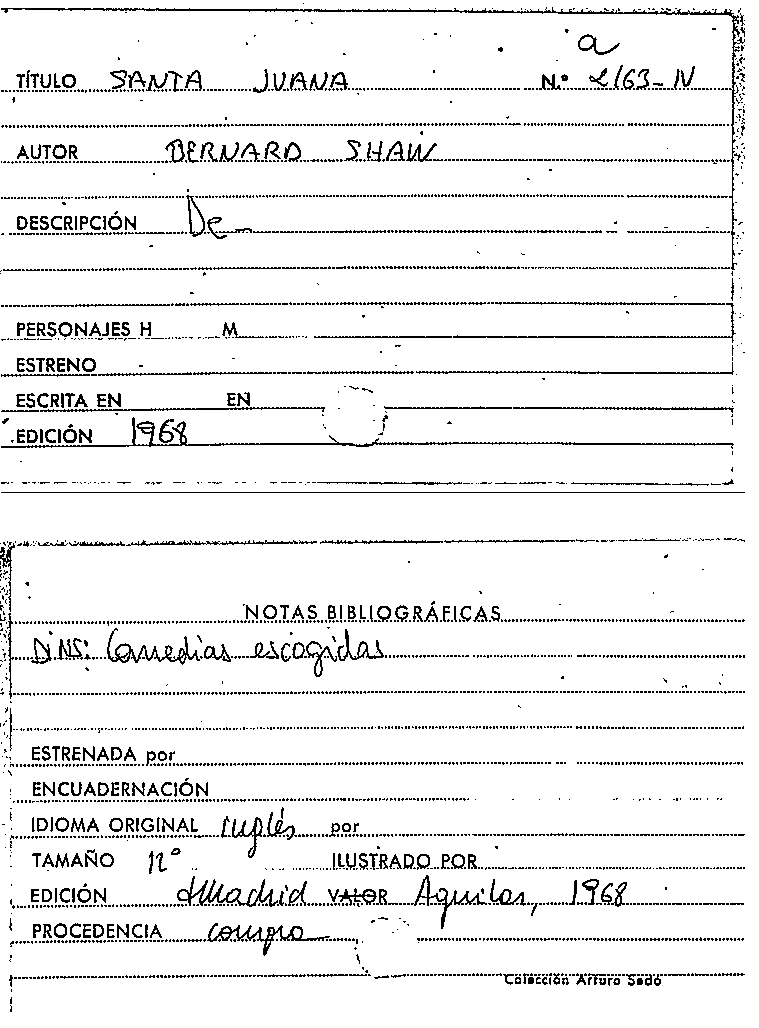 a
TÍTULO SANTA JUANA N.º 2163-IV
AUTOR BERNARD SHAW
DESCRIPCIÓN De_
PERSONAJES H M
ESTRENO
ESCRITA EN EN
EDICIÓN 1968
NOTAS BIBLIOGRÁFICAS
DINS: Comedias escogidas
ESTRENADA por
ENCUADERNACIÓN
IDIOMA ORIGINAL inglés por
TAMAÑO 12º ILUSTRADO POR
EDICIÓN Madrid VALOR Aguilar, 1968
PROCEDENCIA compra
Colección Arturo Sedó